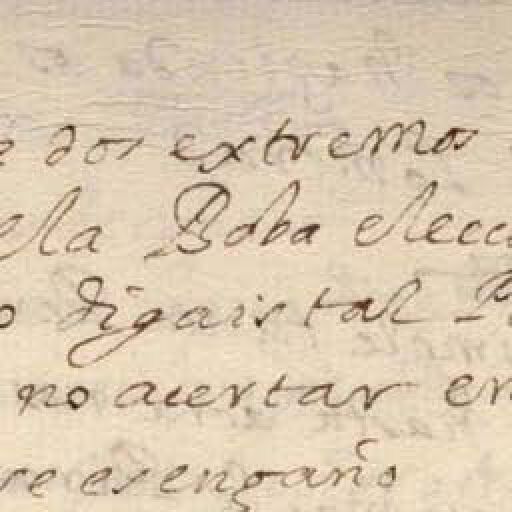 e dos extremos
ela Boba elecc
o digais tal P
no acertar en
re es engaño